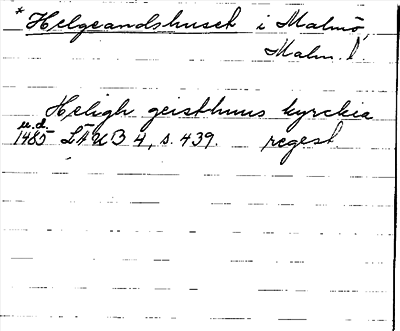 * Helgeandshuset i Malmö,
Malm.
Heligh geisthuus kyrckia
u.d.
1485 LÄUB 4, s. 439. regest